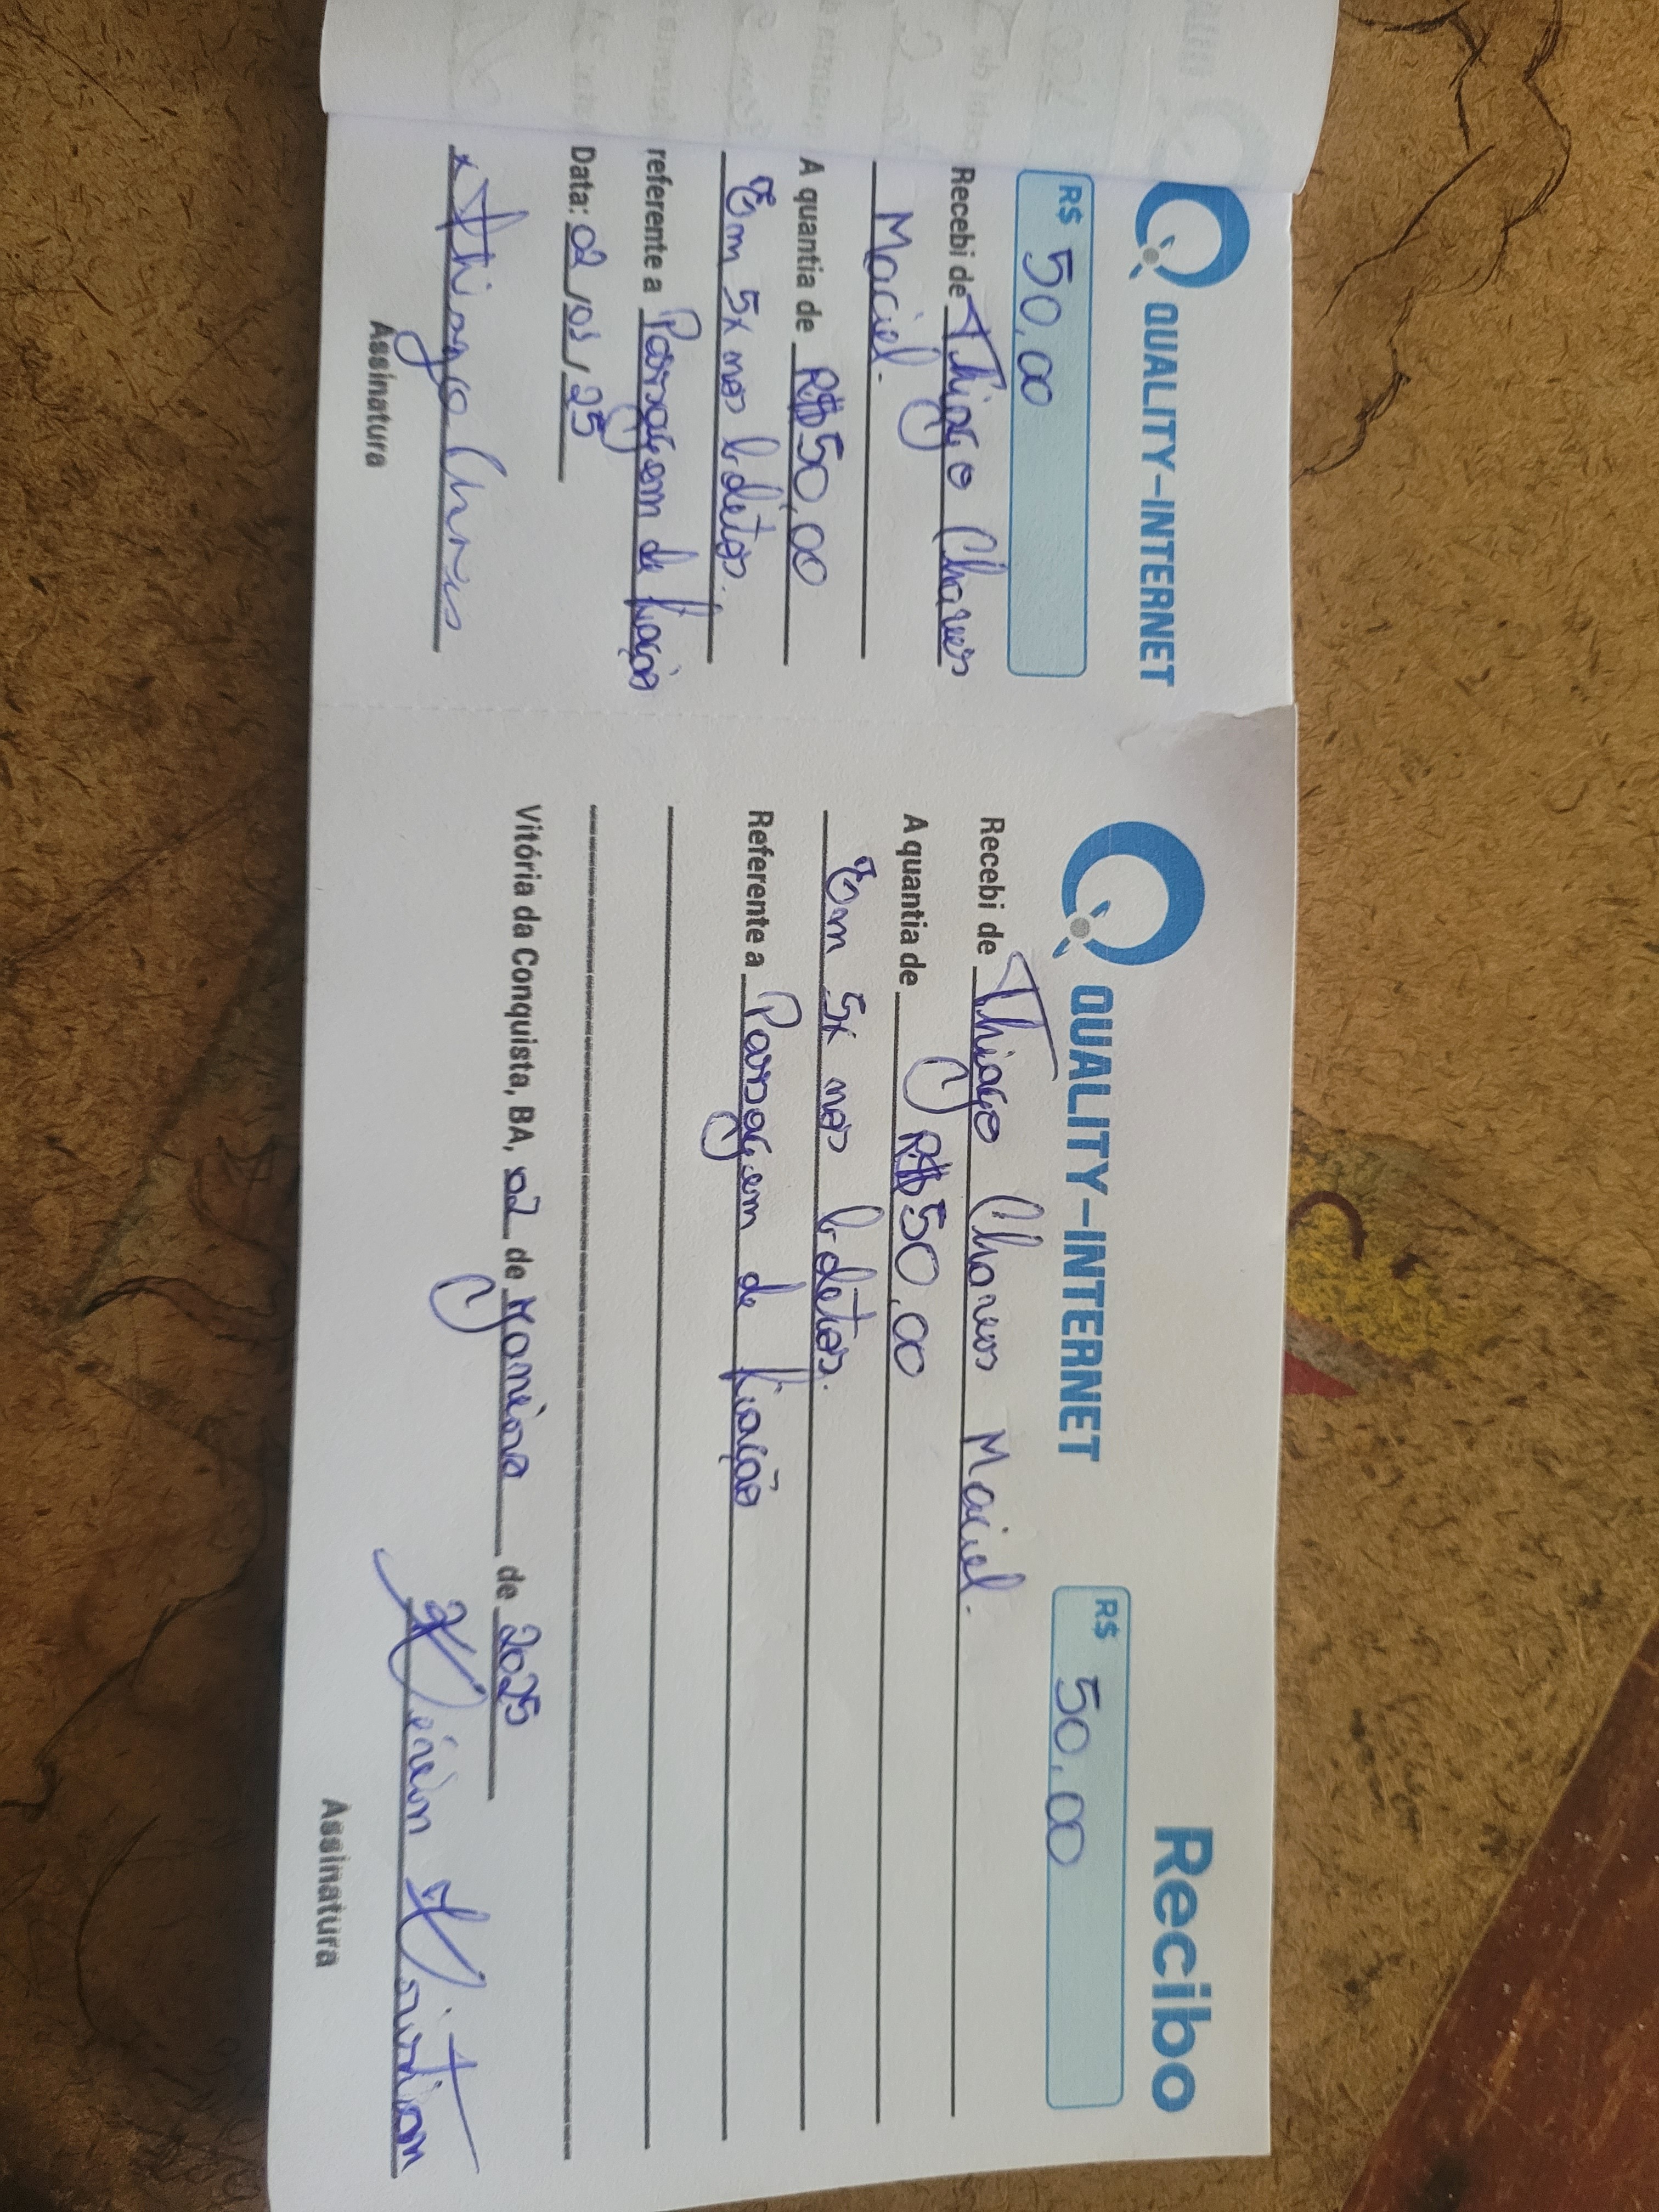 QUALITY-INTERNET
R$ 50,00
Recebi de Thiago Chaves
Maciel.
A quantia de R$50,00
Em 5x nos boletos.
referente a Passagem de fiação
Data: 02/01/25
x Thiago Chaves
Assinatura
QUALITY-INTERNET
Recibo
R$ 50,00
Recebi de Thiago Chaves Maciel.
A quantia de R$50,00
Em 5x nos boletos.
Referente a Passagem de fiação
Vitória da Conquista, BA, 02 de Janeiro de 2025
Assinatura